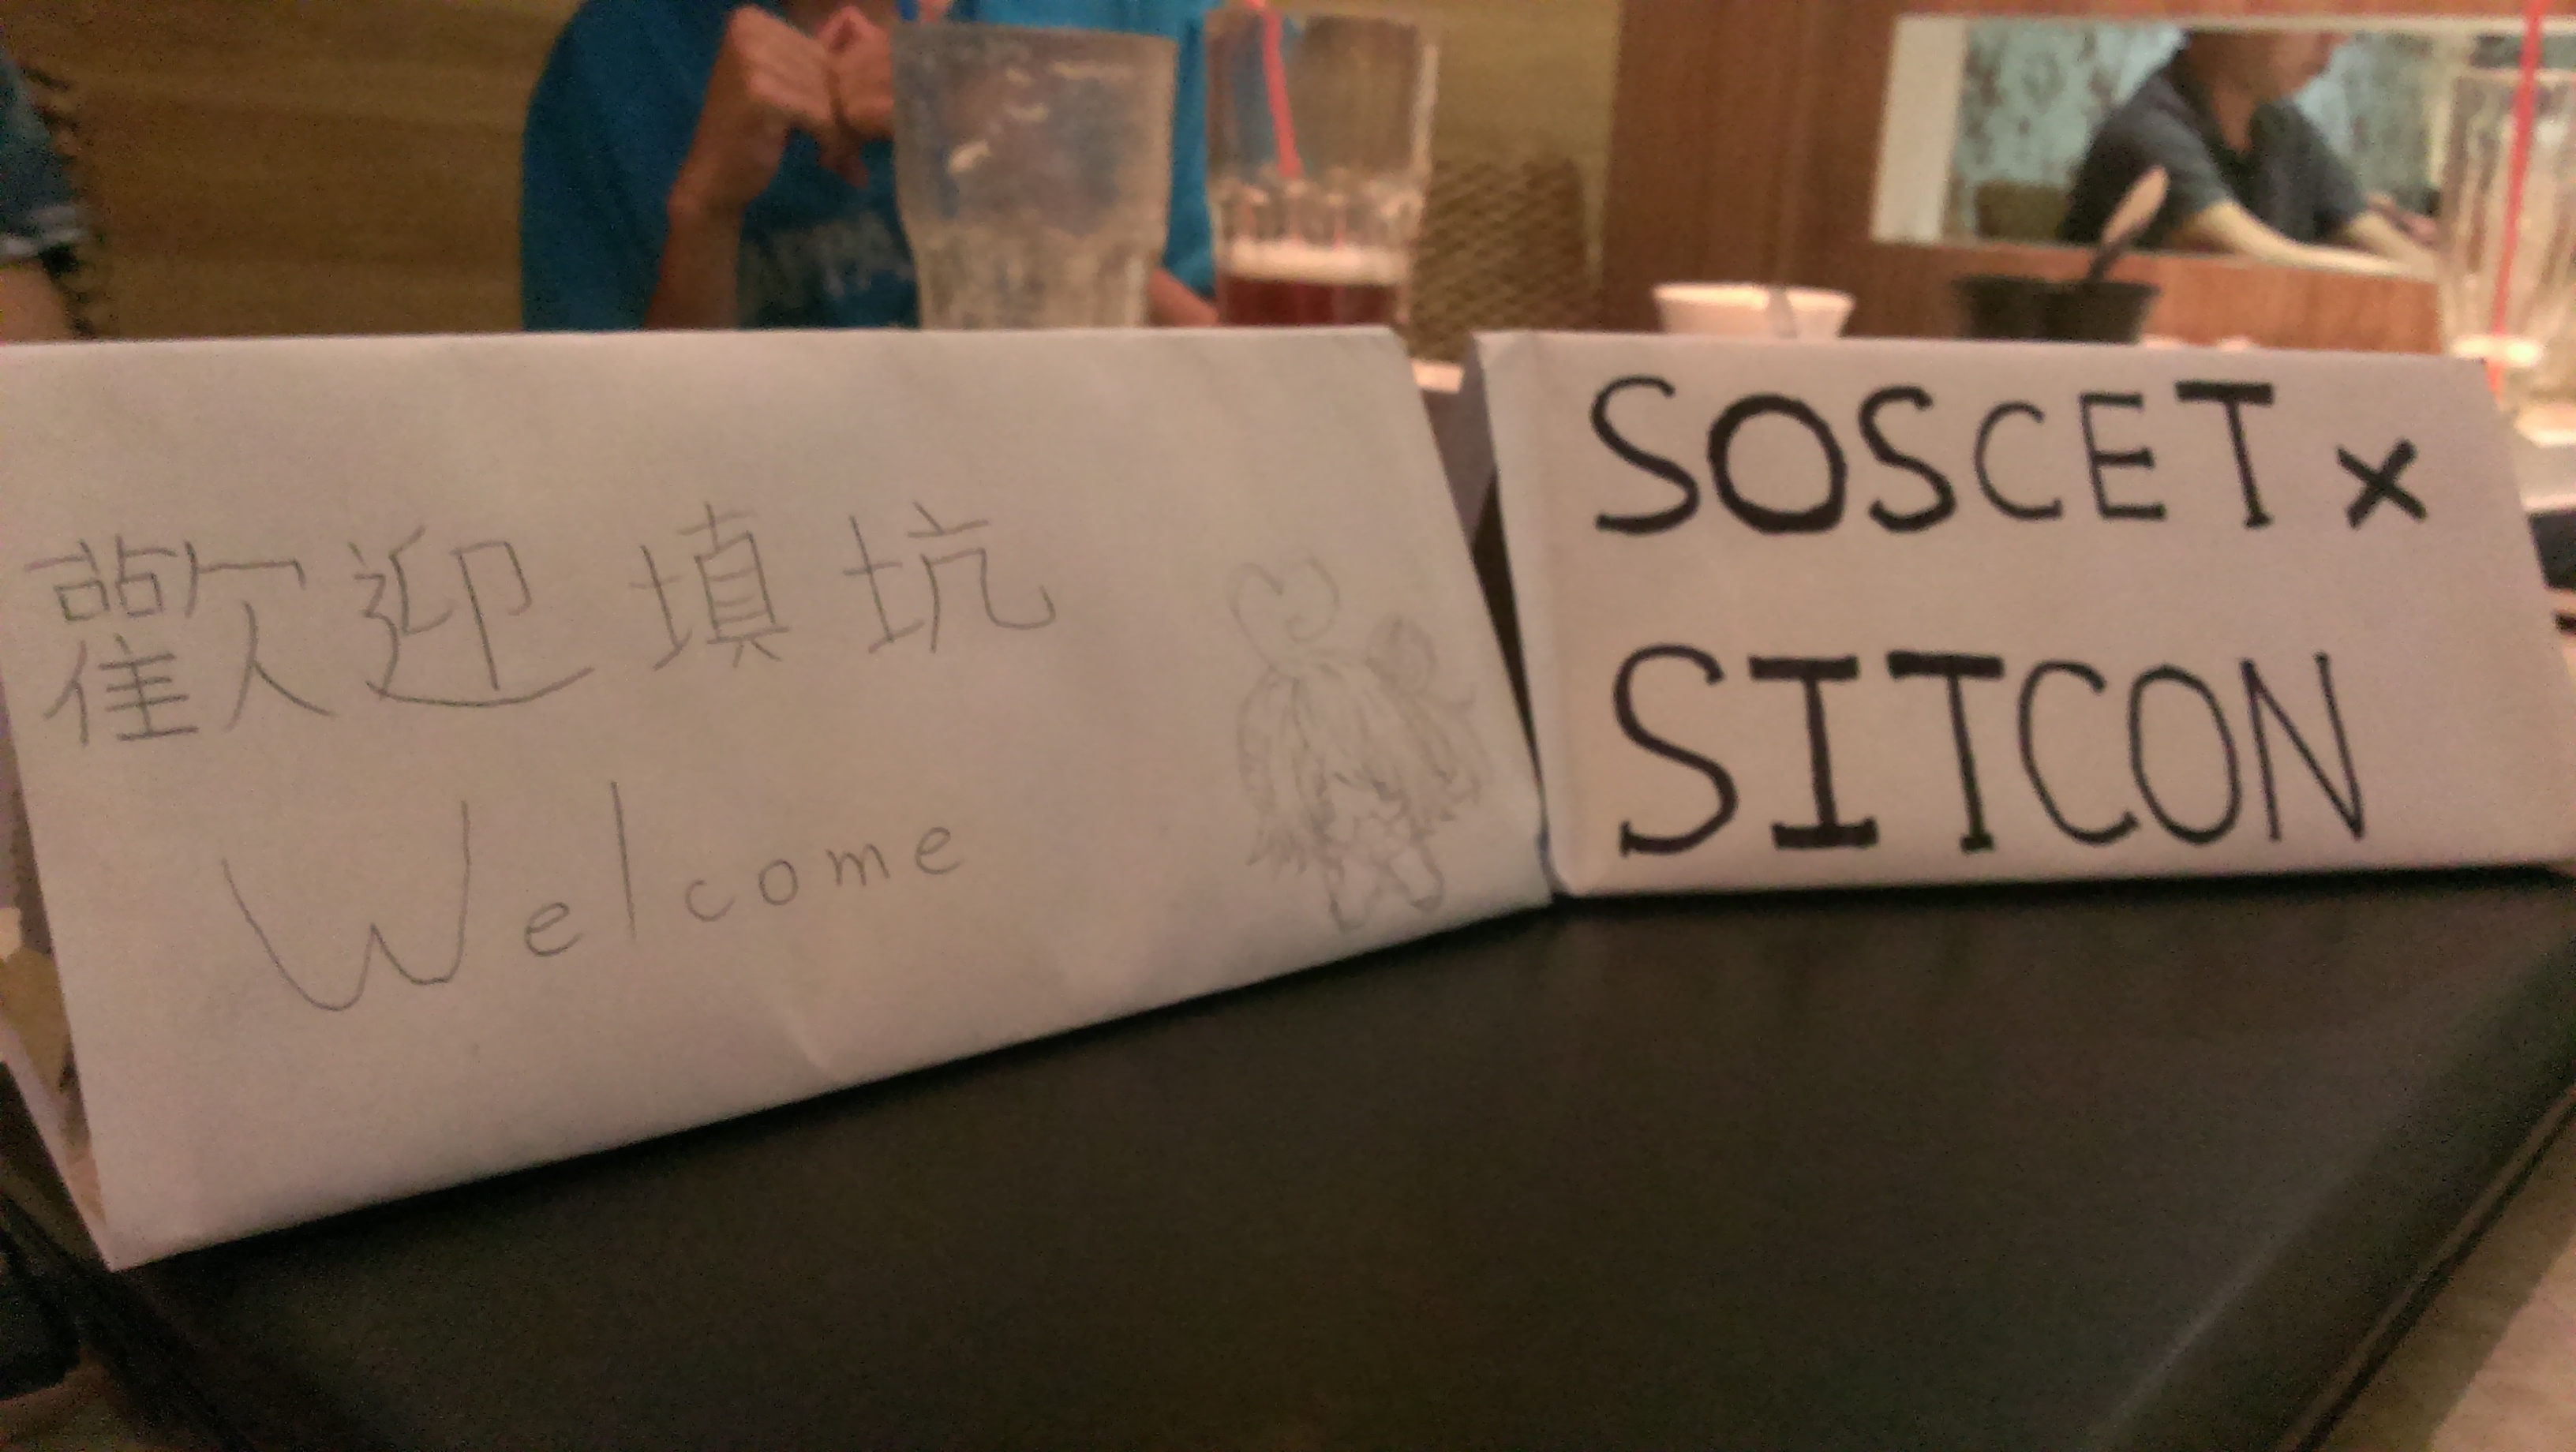 歡迎填坑
Welcome
SOSCET ×
SITCON